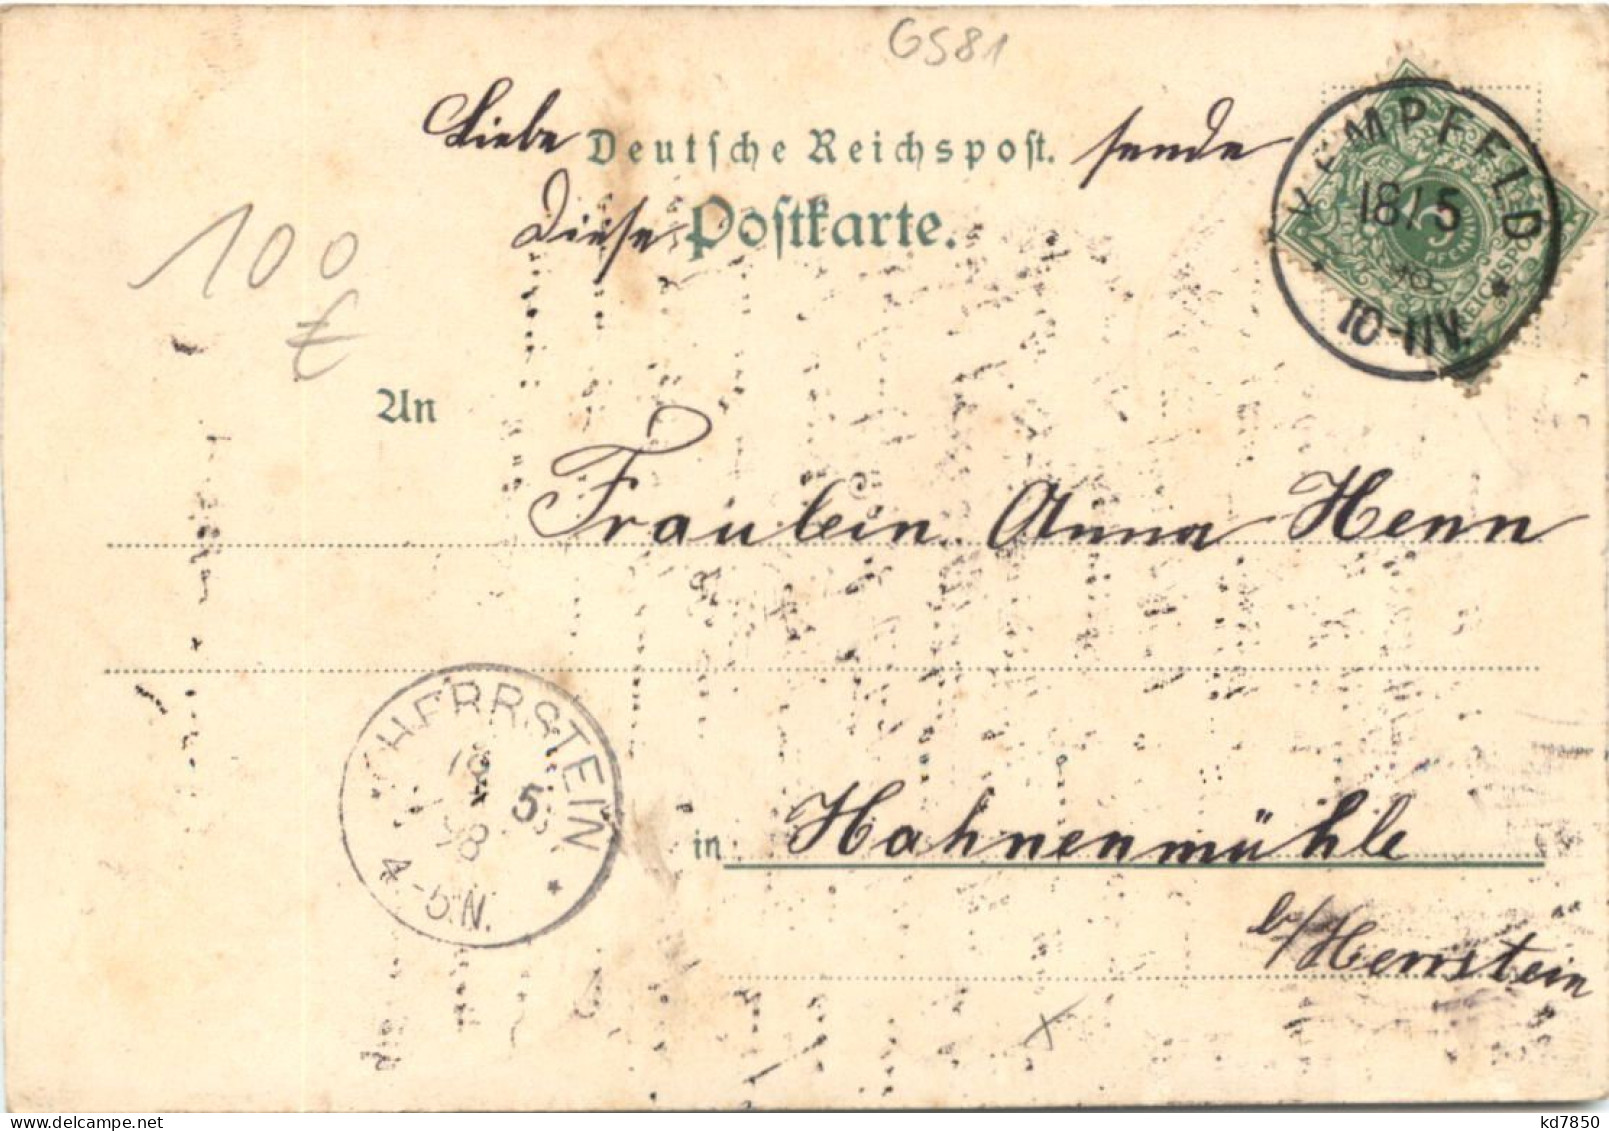 GS81
Liebe Deutsche Reichspost. sende
diese Postkarte.
KEMPFELD
18/5
98
10-11V.
5
PFENNIG
REICHSPOST
100
€
An
Fräulein Anna Henn
HERRSTEIN
18
5
98
4-5N.
in Hahnenmühle
b/Herrstein
x
kd7850